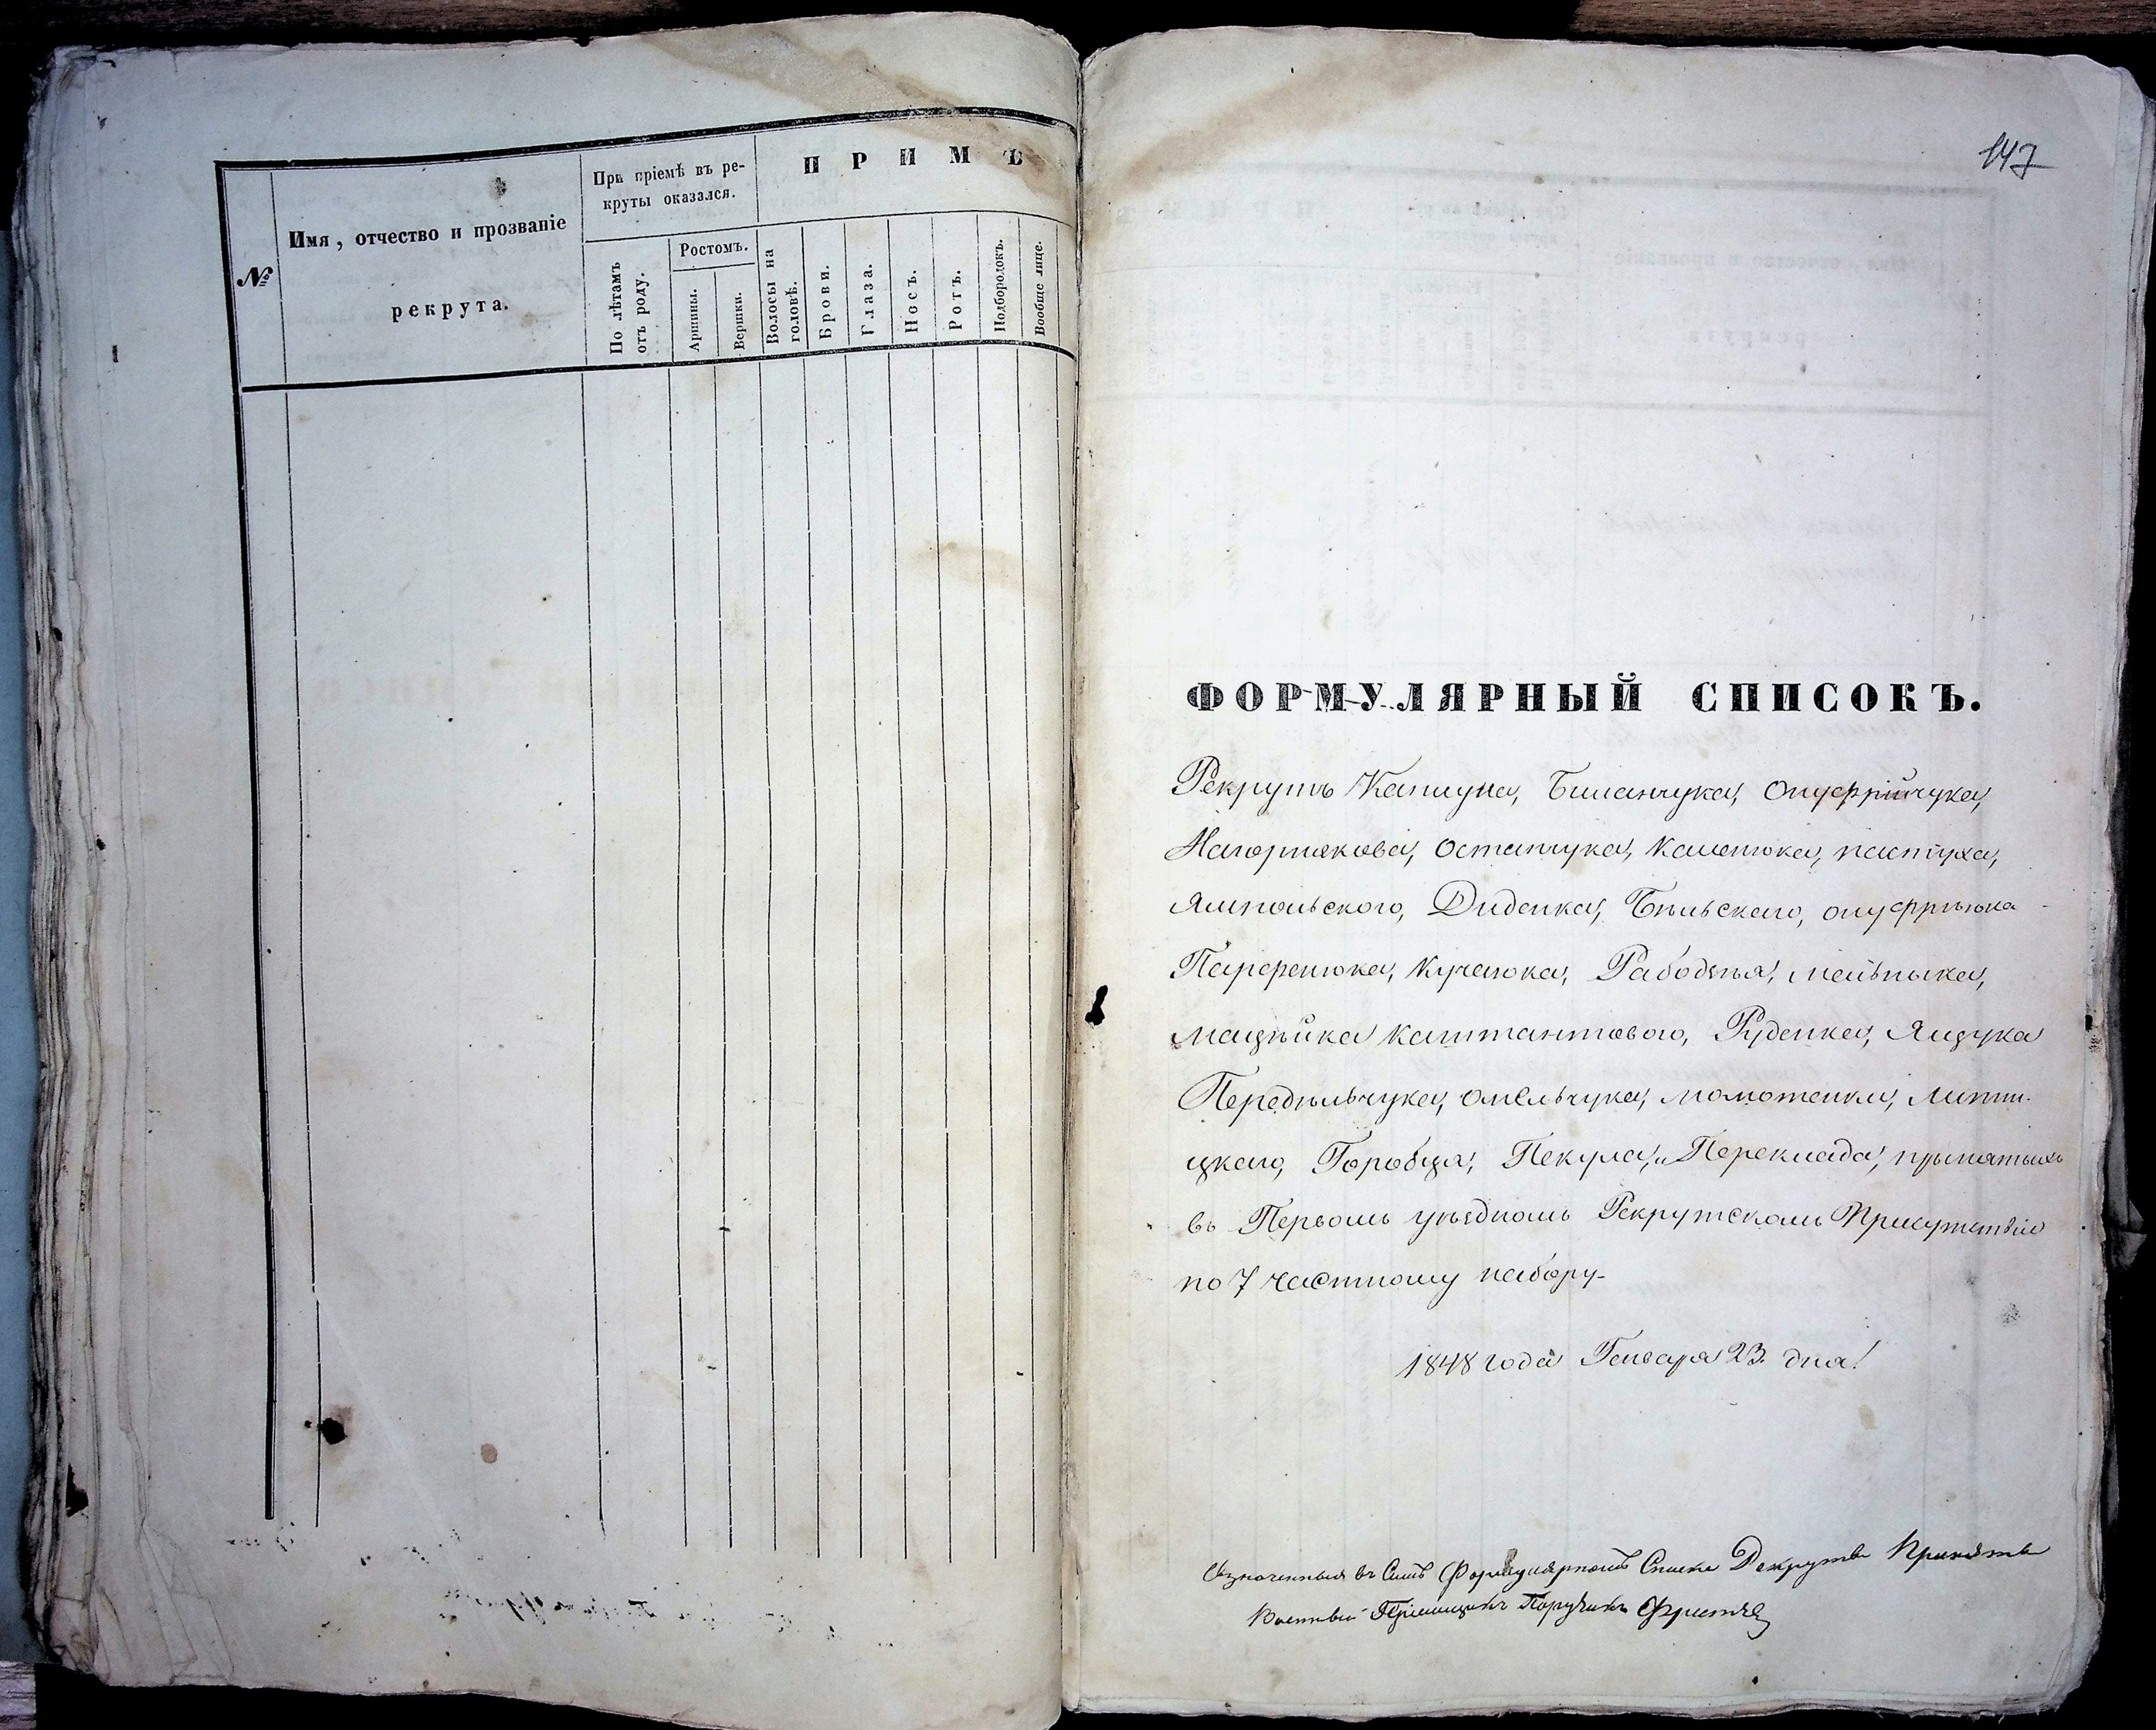 №
Имя, отчество и прозваніе
рекрута.
При пріемѣ въ ре-
круты оказался.
По лѣтамъ
отъ роду.
Ростомъ.
Аршины.
Вершки.
П Р И М Ѣ
Волосы на
головѣ.
Брови.
Глаза.
Носъ.
Ротъ.
Подбородокъ.
Вообще лице.
147
ФОРМУЛЯРНЫЙ СПИСОКЪ.
Рекрутъ Биланчука, Онуфрійчука,
Остапчука, Каленюка, пастуха,
Ямпольского, Диденка, Бѣльскаго, онуфріюка
Парфенюка, Кучаюка, мельныка,
мацѣйка каштантового, Руденка, Яцука
Передѣльчука, омельчука, Липни-
цкаго, Горобца, Пекула, и Переклада, принятыхъ
въ Первомъ уѣздномъ Рекрутскомъ Присутствіи
по 7 частному набору.
1848 года Генваря 23. дня.
Означенныя въ Семъ Формулярномъ Списке Рекрутъ Принятъ
Военный Пріемщикъ Поручикъ